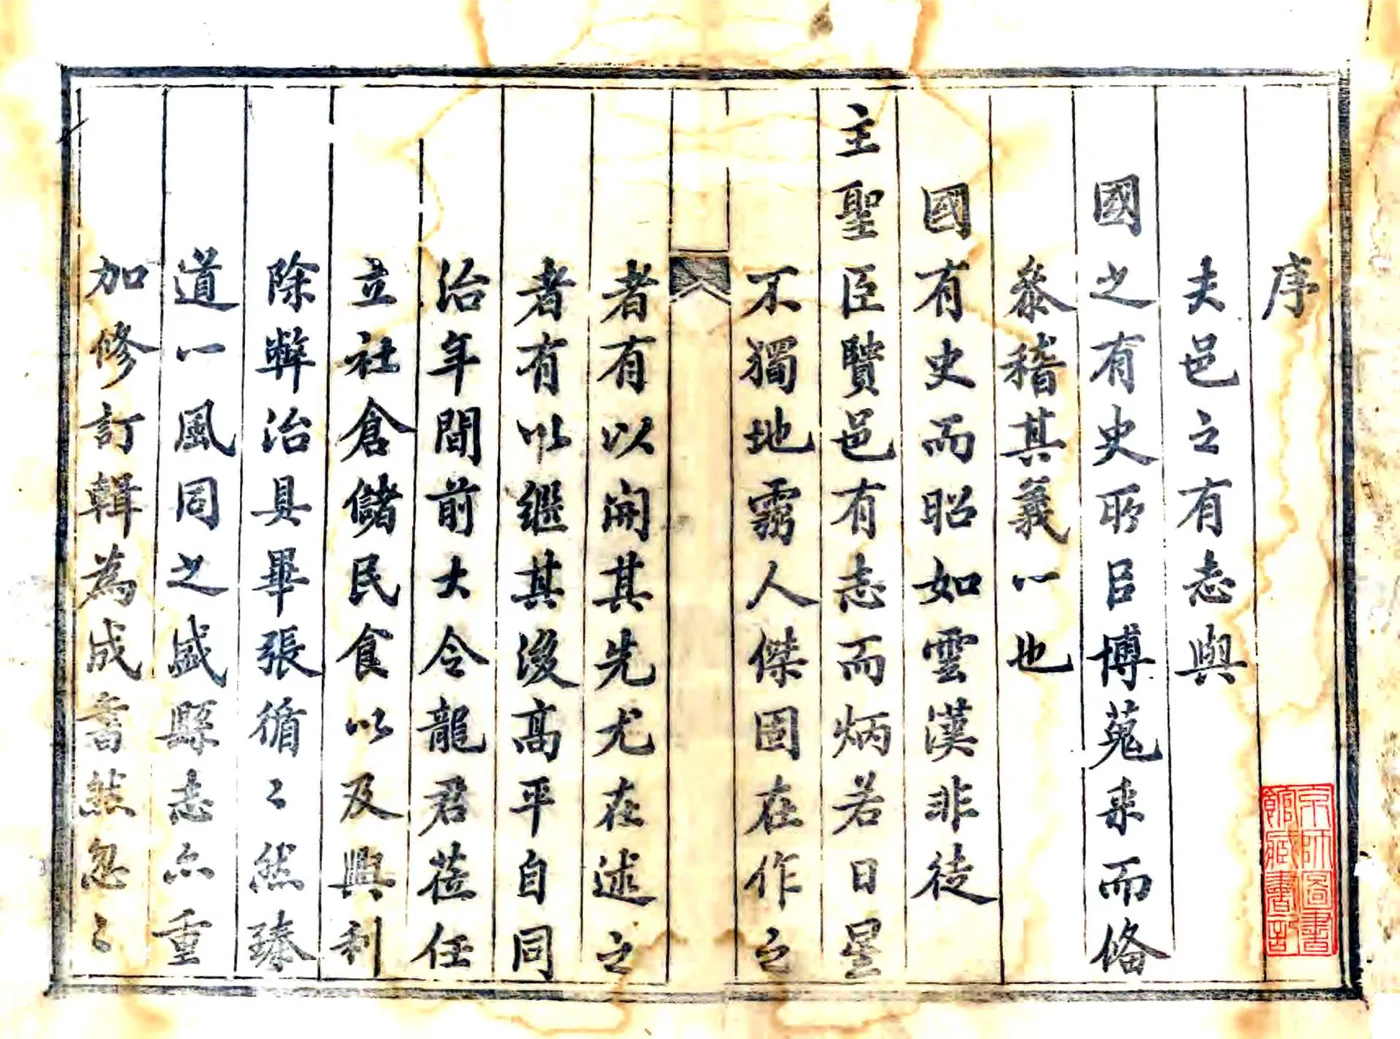 序
夫邑之有志與
國之有史所㠯博蒐采而備
叅稽其義一也
國有史而昭如雲漢非徒
主聖臣賢邑有志而炳若日星
不獨地靈人傑固在作之
者有以開其先尤在述之
者有以繼其後高平自同
治年間前大令龍君莅任
立社倉儲民食以及興利
除弊治具畢張循〻然臻
道一風同之盛縣志亦重
加修訂輯為成書然忽〻
京師圖書
館藏書記